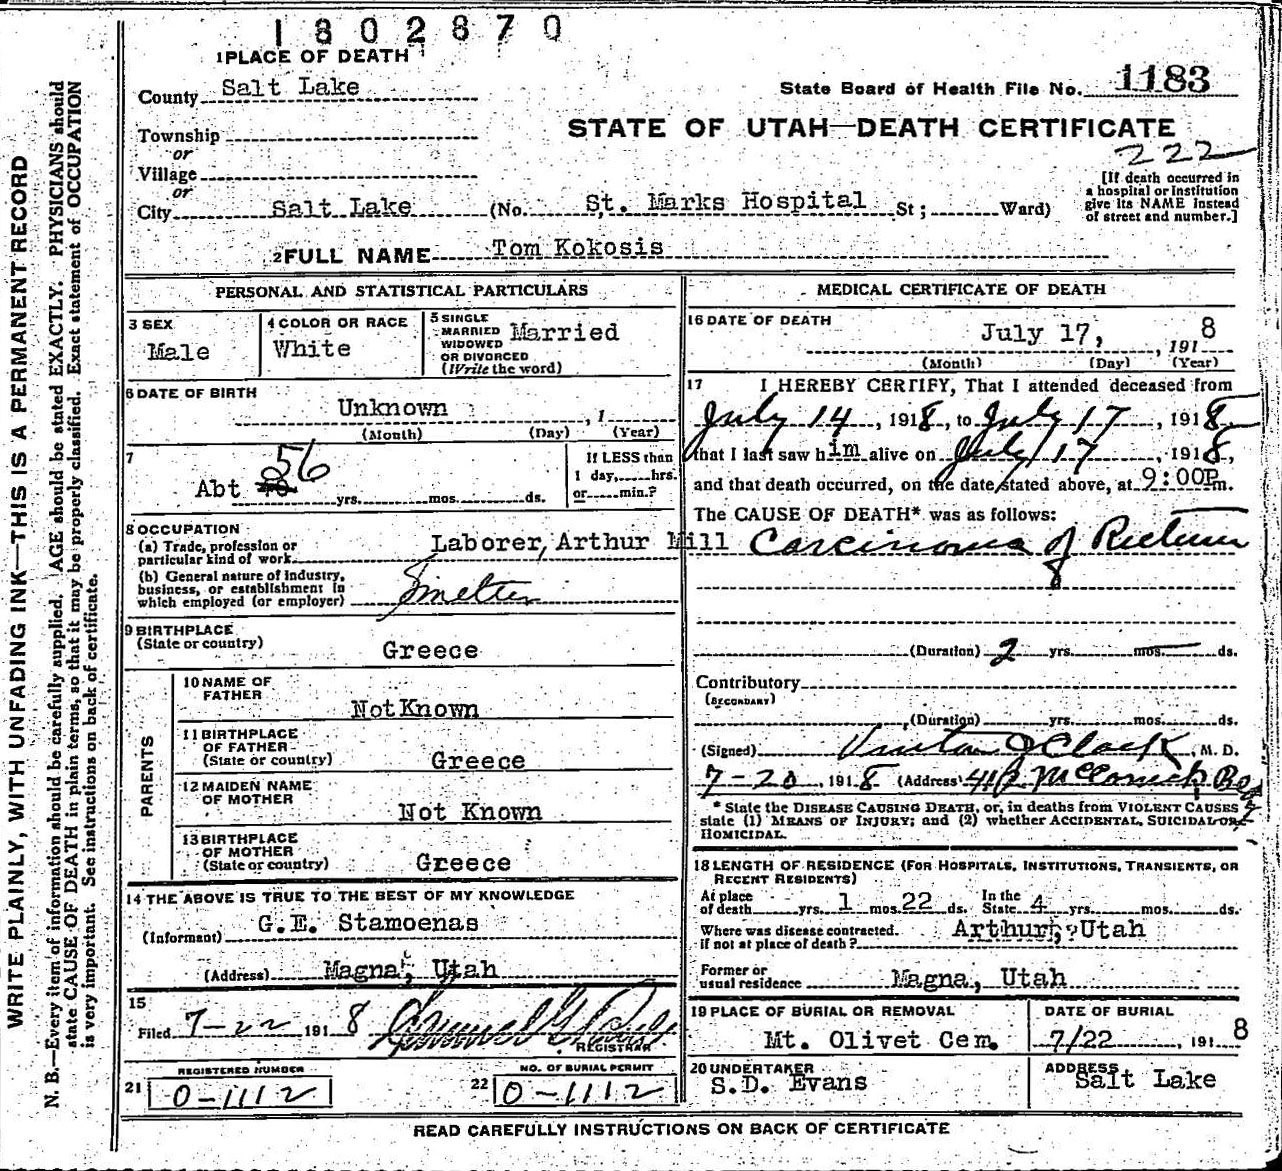 1802870
1 PLACE OF DEATH
County Salt Lake
State Board of Health File No. 1183
Township
or
STATE OF UTAH—DEATH CERTIFICATE
222
Village
or
City Salt Lake (No. St. Marks Hospital St; Ward)
[If death occurred in
a hospital or institution
give its NAME instead
of street and number.]
2 FULL NAME Tom Kokosis
PERSONAL AND STATISTICAL PARTICULARS
3 SEX
Male
4 COLOR OR RACE
White
5 SINGLE
MARRIED
WIDOWED
OR DIVORCED
(Write the word)
Married
6 DATE OF BIRTH
Unknown , 1
(Month) (Day) (Year)
7
Abt 56 yrs. mos. ds.
If LESS than
1 day, hrs.
or min.?
8 OCCUPATION
(a) Trade, profession or
particular kind of work Laborer, Arthur Mill
(b) General nature of industry,
business, or establishment in
which employed (or employer) Smelter
9 BIRTHPLACE
(State or country) Greece
PARENTS
10 NAME OF
FATHER
Not Known
11 BIRTHPLACE
OF FATHER
(State or country) Greece
12 MAIDEN NAME
OF MOTHER Not Known
13 BIRTHPLACE
OF MOTHER
(State or country) Greece
14 THE ABOVE IS TRUE TO THE BEST OF MY KNOWLEDGE
(Informant) G.E. Stamoenas
(Address) Magna, Utah
15
Filed 7-22 191 8
REGISTRAR
REGISTERED NUMBER
21 0-1112
NO. OF BURIAL PERMIT
22 0-1112
MEDICAL CERTIFICATE OF DEATH
16 DATE OF DEATH
July 17, , 191 8
(Month) (Day) (Year)
17 I HEREBY CERTIFY, That I attended deceased from
July 14, 1918, to July 17, 1918,
that I last saw him alive on July 17 1918,
and that death occurred, on the date stated above, at 9:00P m.
The CAUSE OF DEATH* was as follows:
Carcinoma of Rectum
(Duration) 2 yrs. mos. ds.
Contributory
(SECONDARY)
(Duration) yrs. mos. ds.
(Signed) Clark, M. D.
7-20, 1918 (Address) 412 McCornick Bldg
* State the DISEASE CAUSING DEATH, or, in deaths from VIOLENT CAUSES
state (1) MEANS OF INJURY; and (2) whether ACCIDENTAL, SUICIDAL OR
HOMICIDAL.
18 LENGTH OF RESIDENCE (FOR HOSPITALS, INSTITUTIONS, TRANSIENTS, OR
RECENT RESIDENTS)
At place
of death yrs. 1 mos. 22 ds.
In the
State 4 yrs. mos. ds.
Where was disease contracted.
if not at place of death? Arthur, Utah
Former or
usual residence Magna, Utah
19 PLACE OF BURIAL OR REMOVAL
Mt. Olivet Cem.
DATE OF BURIAL
7/22 , 191 8
20 UNDERTAKER
S.D. Evans
ADDRESS
Salt Lake
READ CAREFULLY INSTRUCTIONS ON BACK OF CERTIFICATE
WRITE PLAINLY, WITH UNFADING INK—THIS IS A PERMANENT RECORD
N. B.—Every item of information should be carefully supplied. AGE should be stated EXACTLY. PHYSICIANS should
state CAUSE OF DEATH in plain terms, so that it may be properly classified. Exact statement of OCCUPATION
is very important. See instructions on back of certificate.